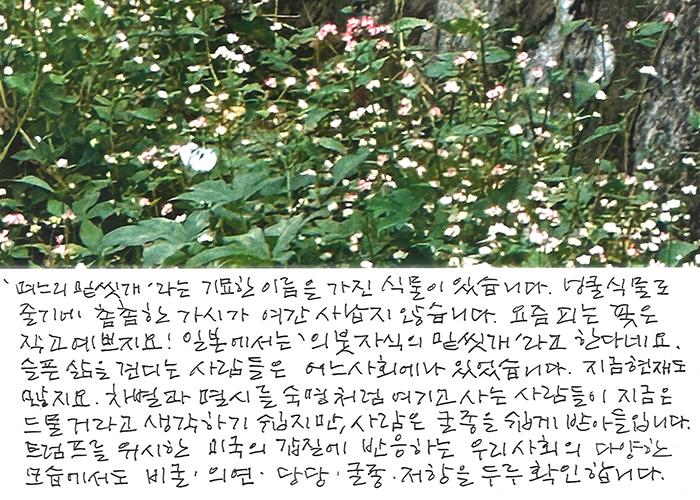 '며느리 밑씻개'라는 기묘한 이름을 가진 식물이 있습니다. 넝쿨식물로
줄기에 촘촘한 가시가 여간 사납지 않습니다. 요즘 피는 꽃은
작고 예쁘지요! 일본에서는 '의붓자식의 밑씻개'라고 한다네요.
슬픈 삶을 견디는 사람들은 어느사회에나 있었습니다. 지금현재도
많지요. 차별과 멸시를 숙명처럼 여기고 사는 사람들이 지금은
드물 거라고 생각하기 쉽지만, 사람은 굴종을 쉽게 받아들입니다.
트럼프를 위시한 미국의 갑질에 반응하는 우리사회의 다양한
모습에서도 비굴·의연·당당·굴종·저항을 두루 확인합니다.